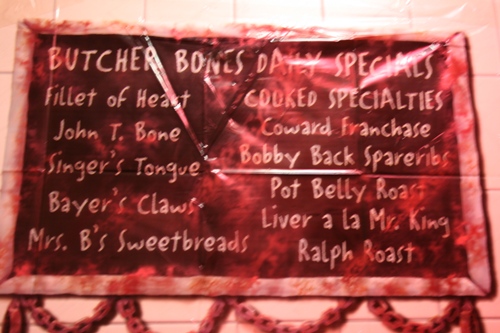 BUTCHER BONES DAILY SPECIALS
Fillet of Heart
John T. Bone
Singer's Tongue
Bayer's Claws
Mrs. B's Sweetbreads
COOKED SPECIALTIES
Coward Franchase
Bobby Back Spareribs
Pot Belly Roast
Liver a la Mr. King
Ralph Roast